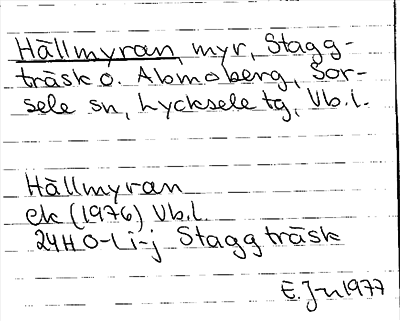 Hällmyran, myr, Stagg-
träsk o. Abmoberg, Sor-
sele sn, Lycksele tg, Vb.l.
Hällmyran
ek (1976) Vb.l.
24H 0-1 i-j Staggträsk
E. Jn 1977